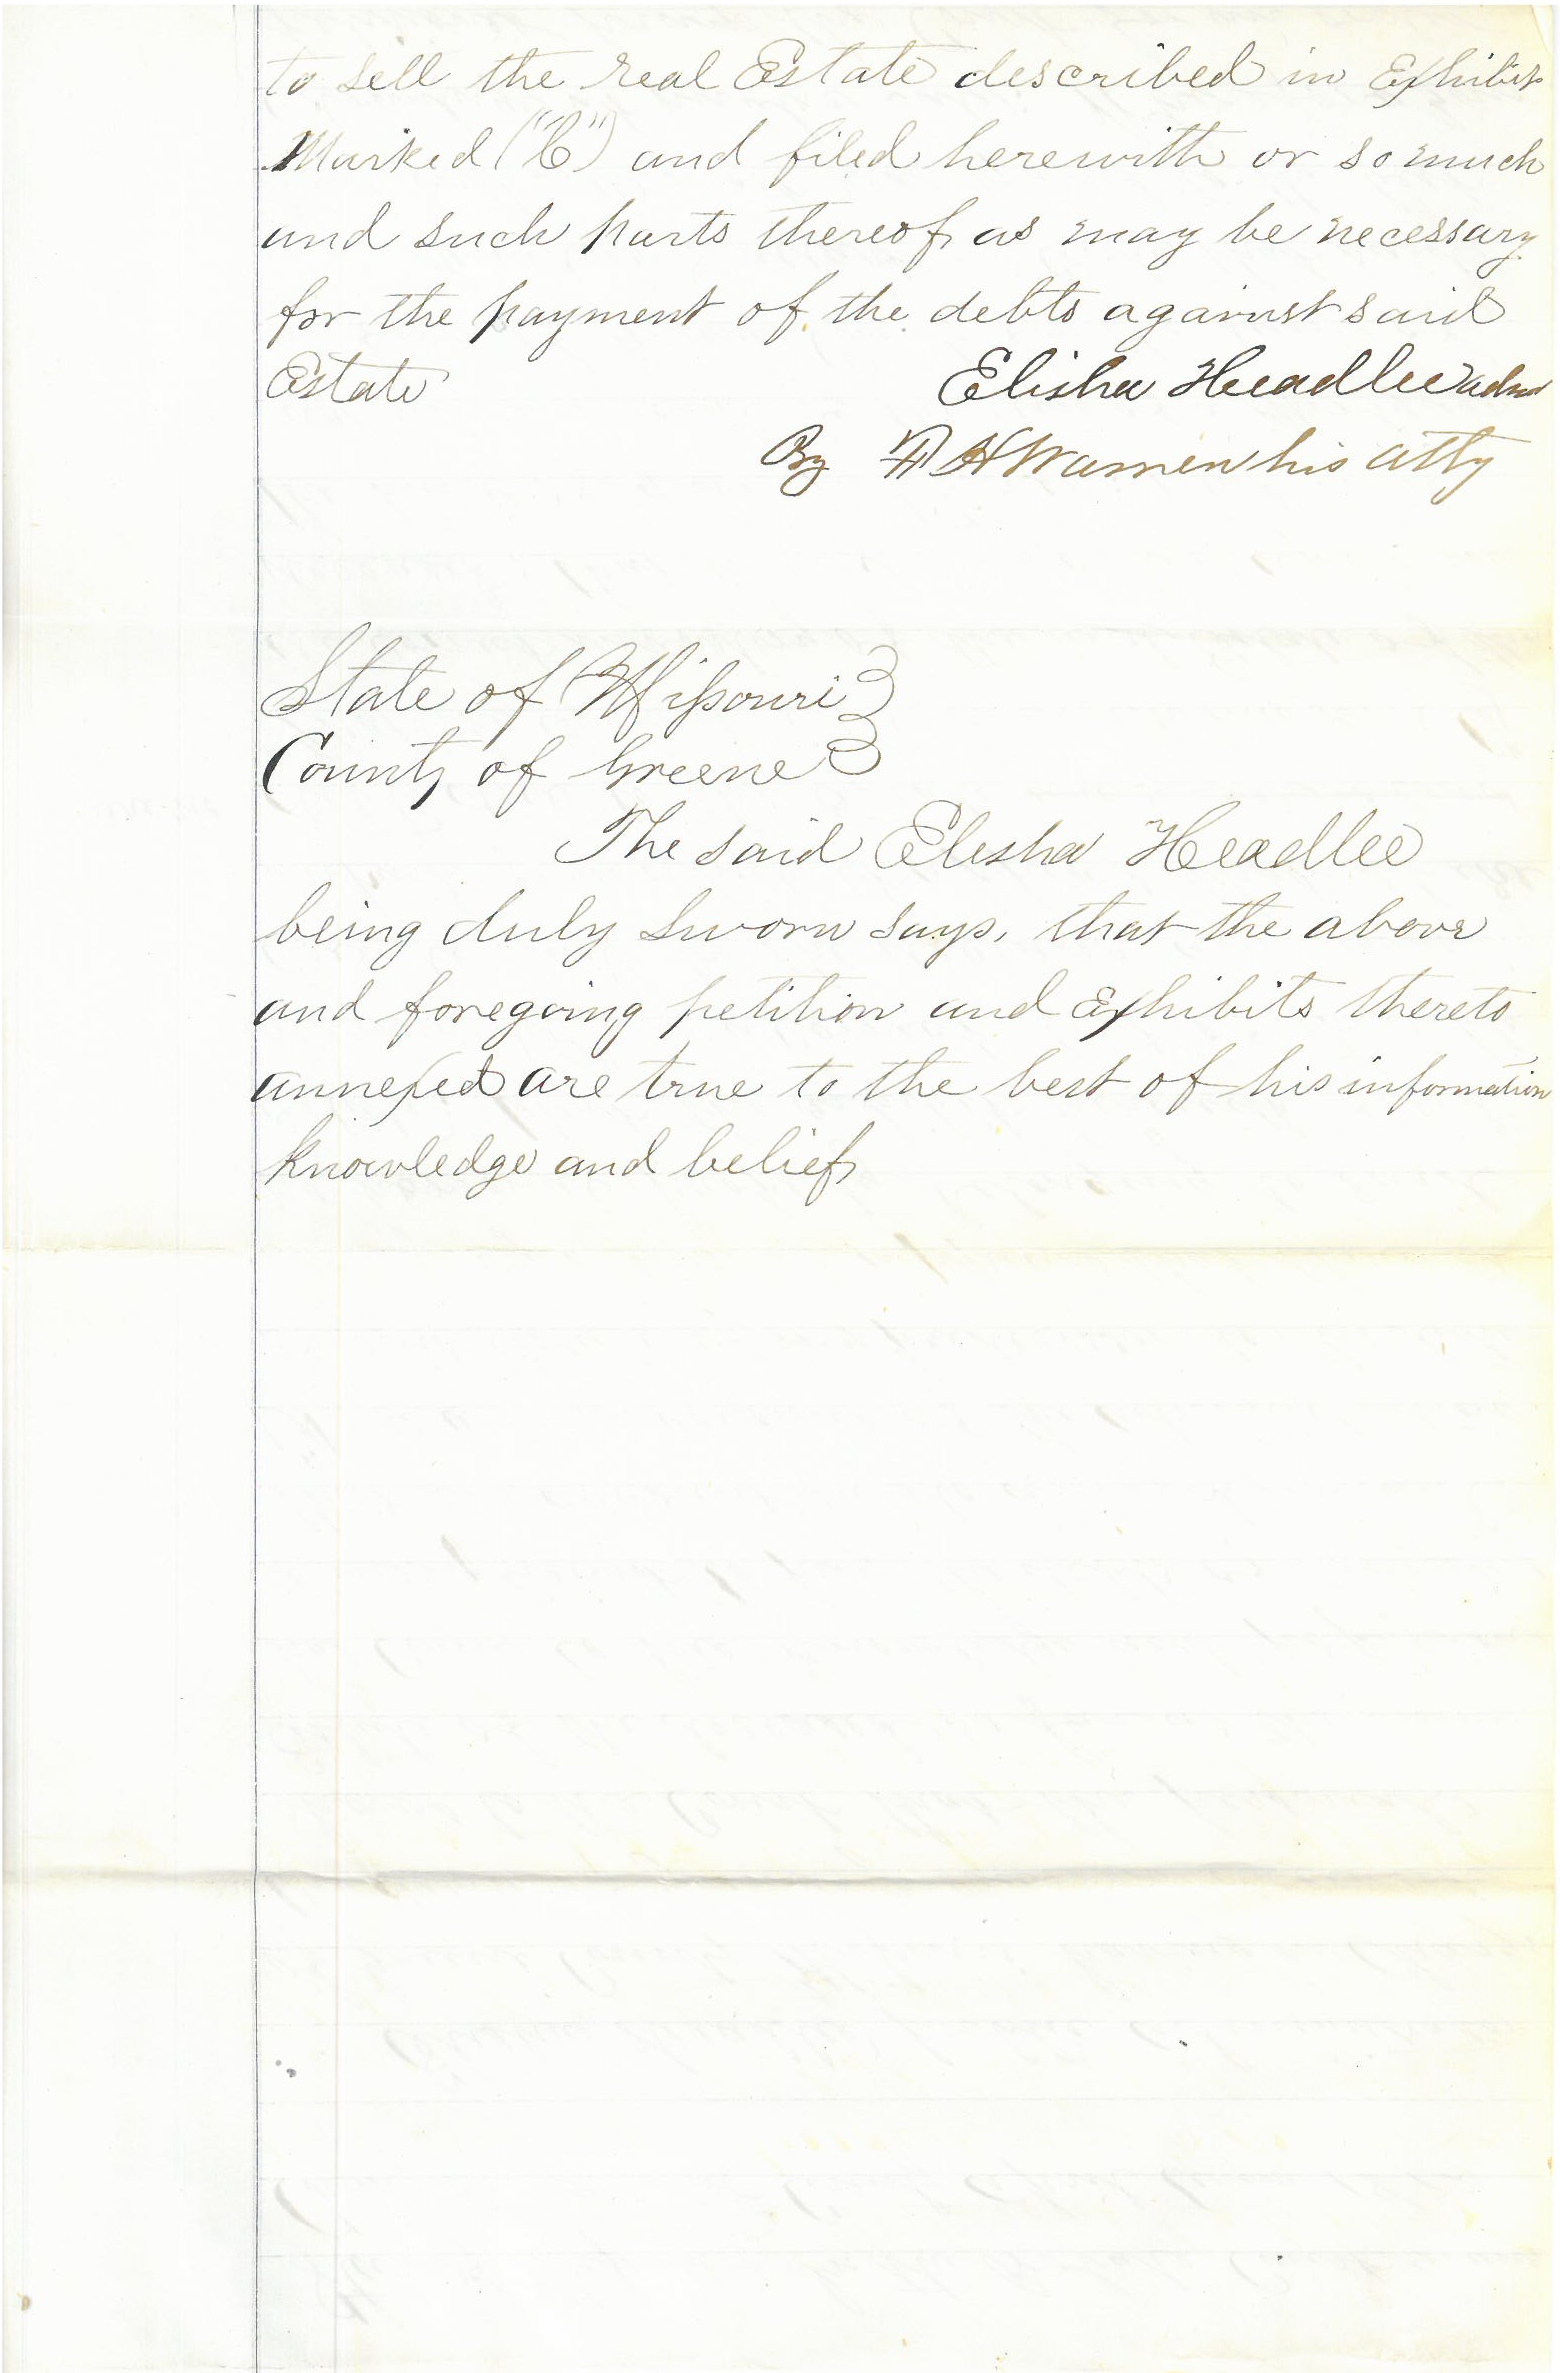 to sell the real Estate described in Exhibit
Marked ("C") and filed herewith or so much
and such parts thereof as may be necessary
for the payment of the debts against said
Estate Elisha Headlee adm
By H Warren his atty
State of Missouri }
County of Greene }
The said Elisha Headlee
being duly sworn says, that the above
and foregoing petition and Exhibits thereto
annexed are true to the best of his information
knowledge and belief